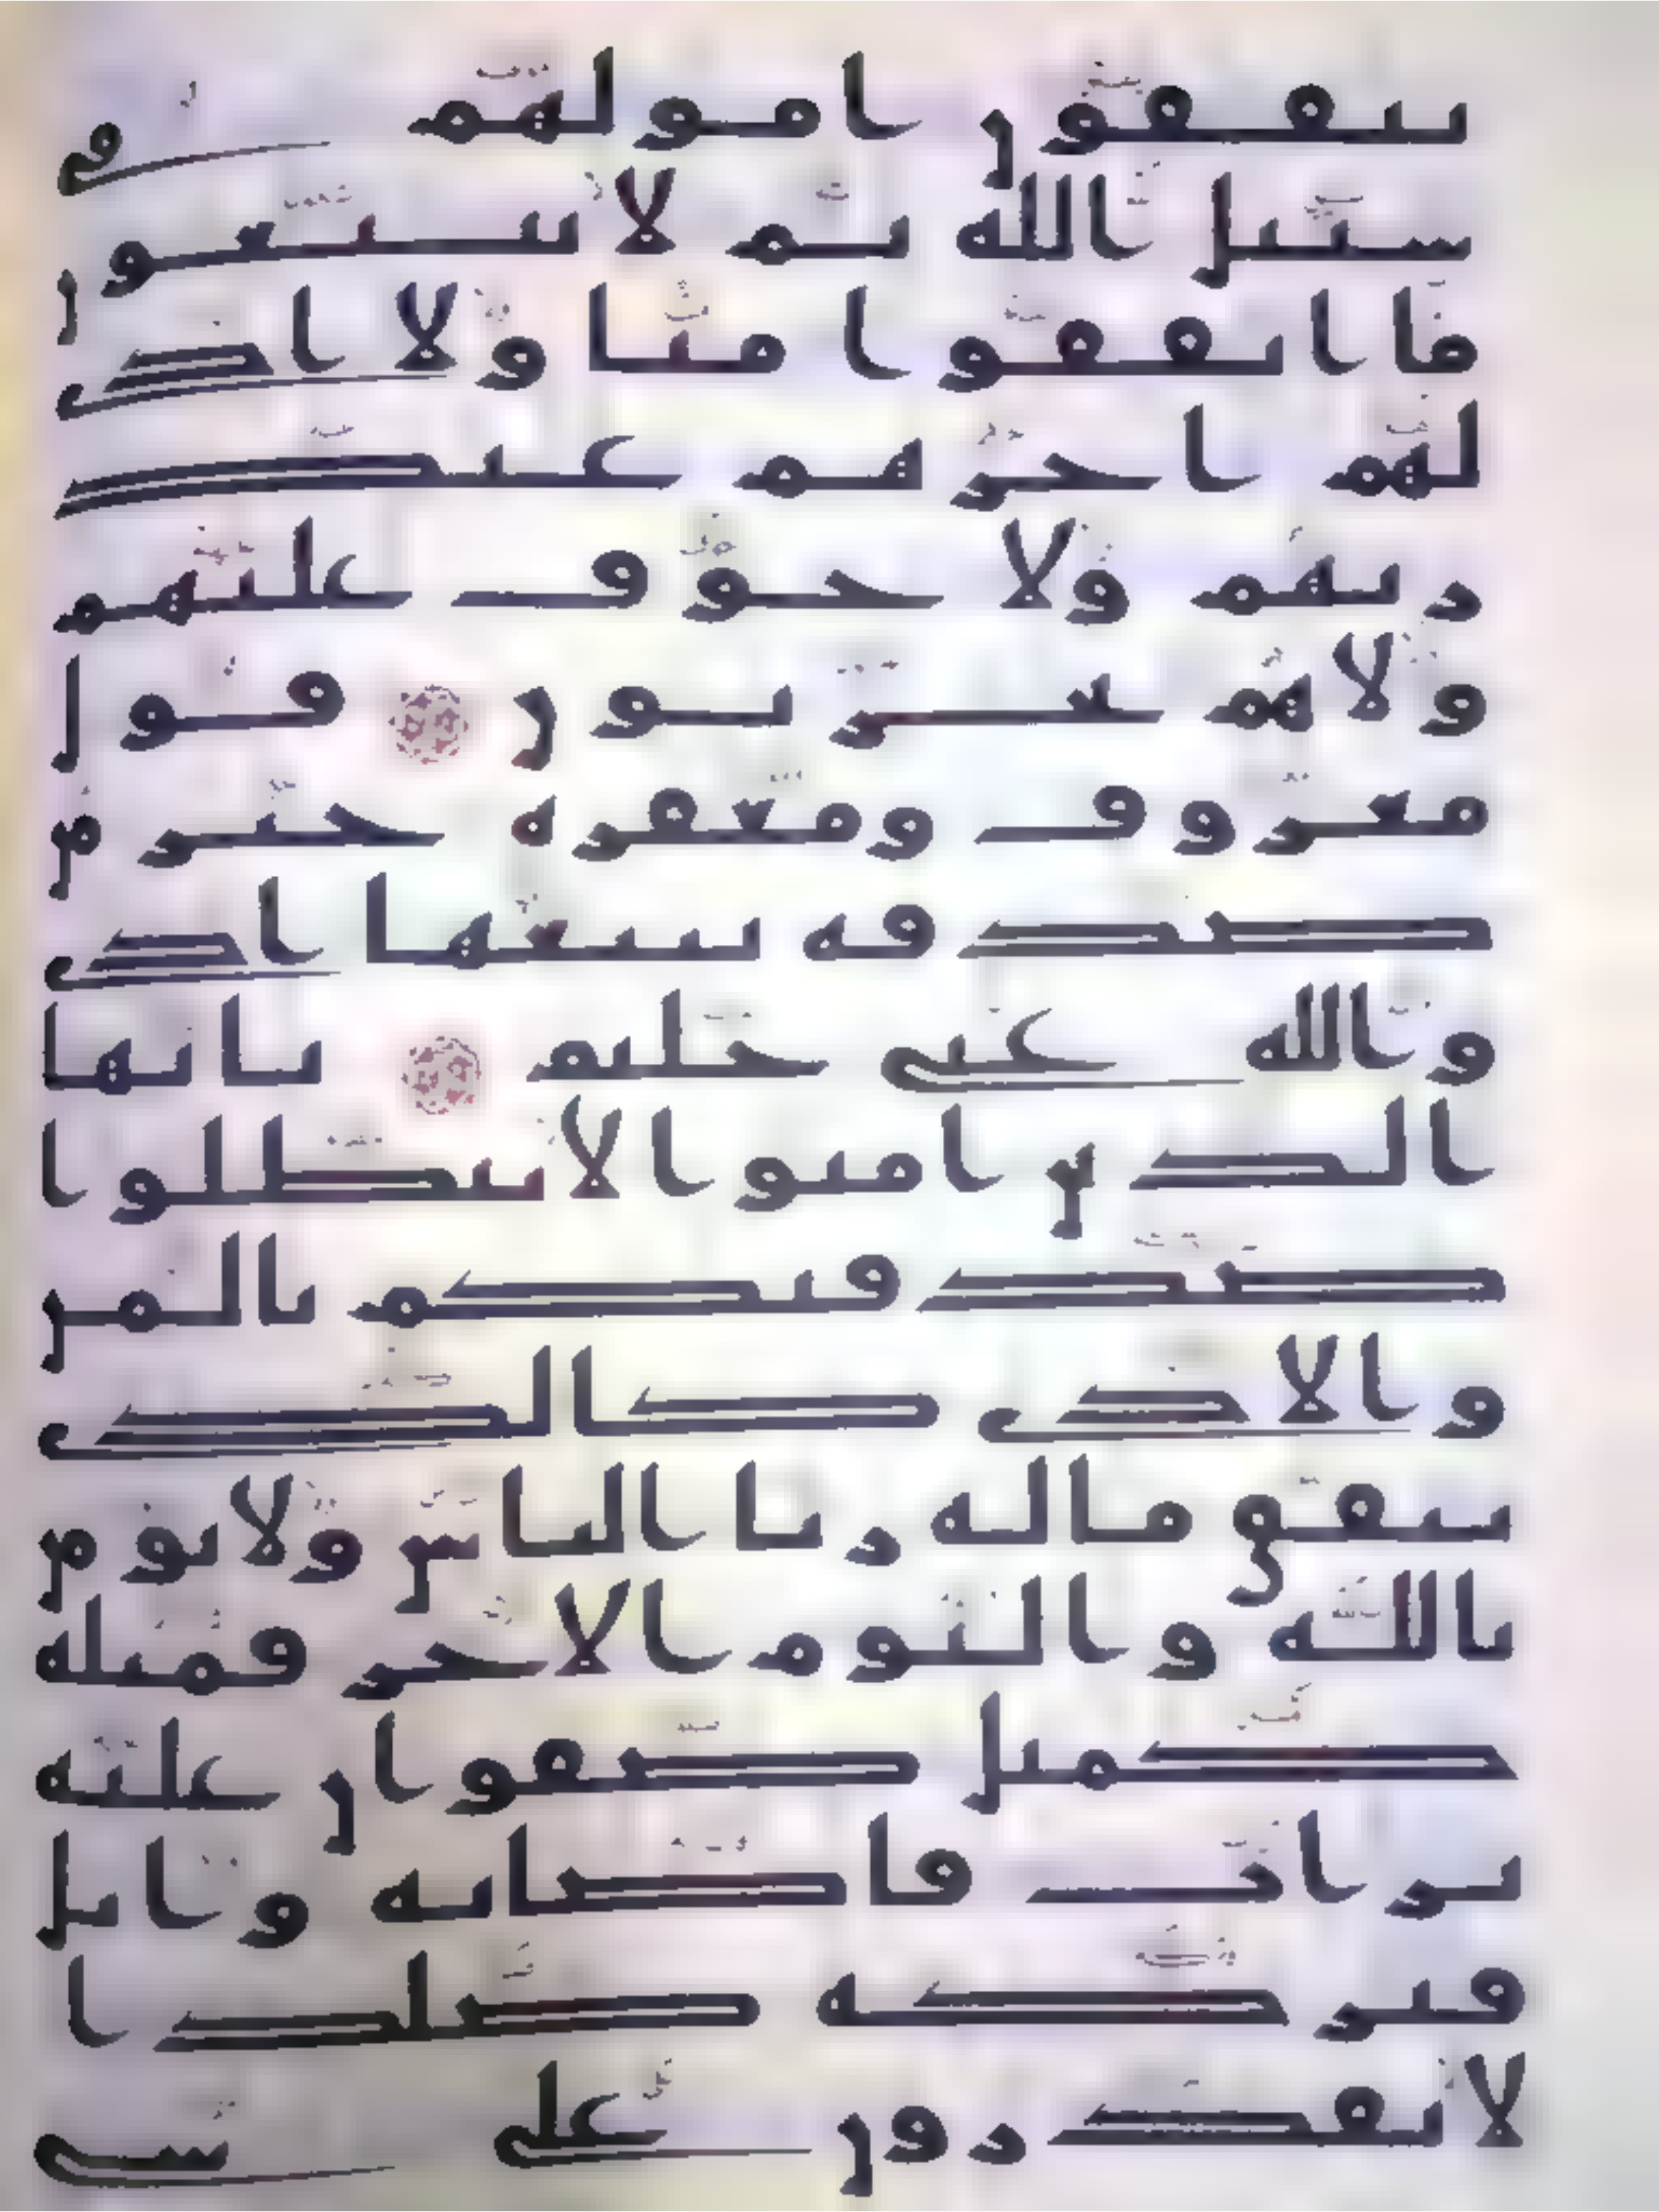 ينفقون امولهم في
سبيل الله ثم لا يتبعون
ما انفقوا منا ولا اذى
لهم اجرهم عند
ربهم ولا خوف عليهم
ولا هم يحزنون قول
معروف ومغفرة خير من
صدقة يتبعها اذى
والله غني حليم يايها
الذين امنوا لا تبطلوا
صدقتكم بالمن
والاذى كالذي
ينفق ماله ريا الناس ولا يومن
بالله واليوم الاخر فمثله
كمثل صفوان عليه
تراب فاصابه وابل
فتركه صلدا
لا يقدرون على شي